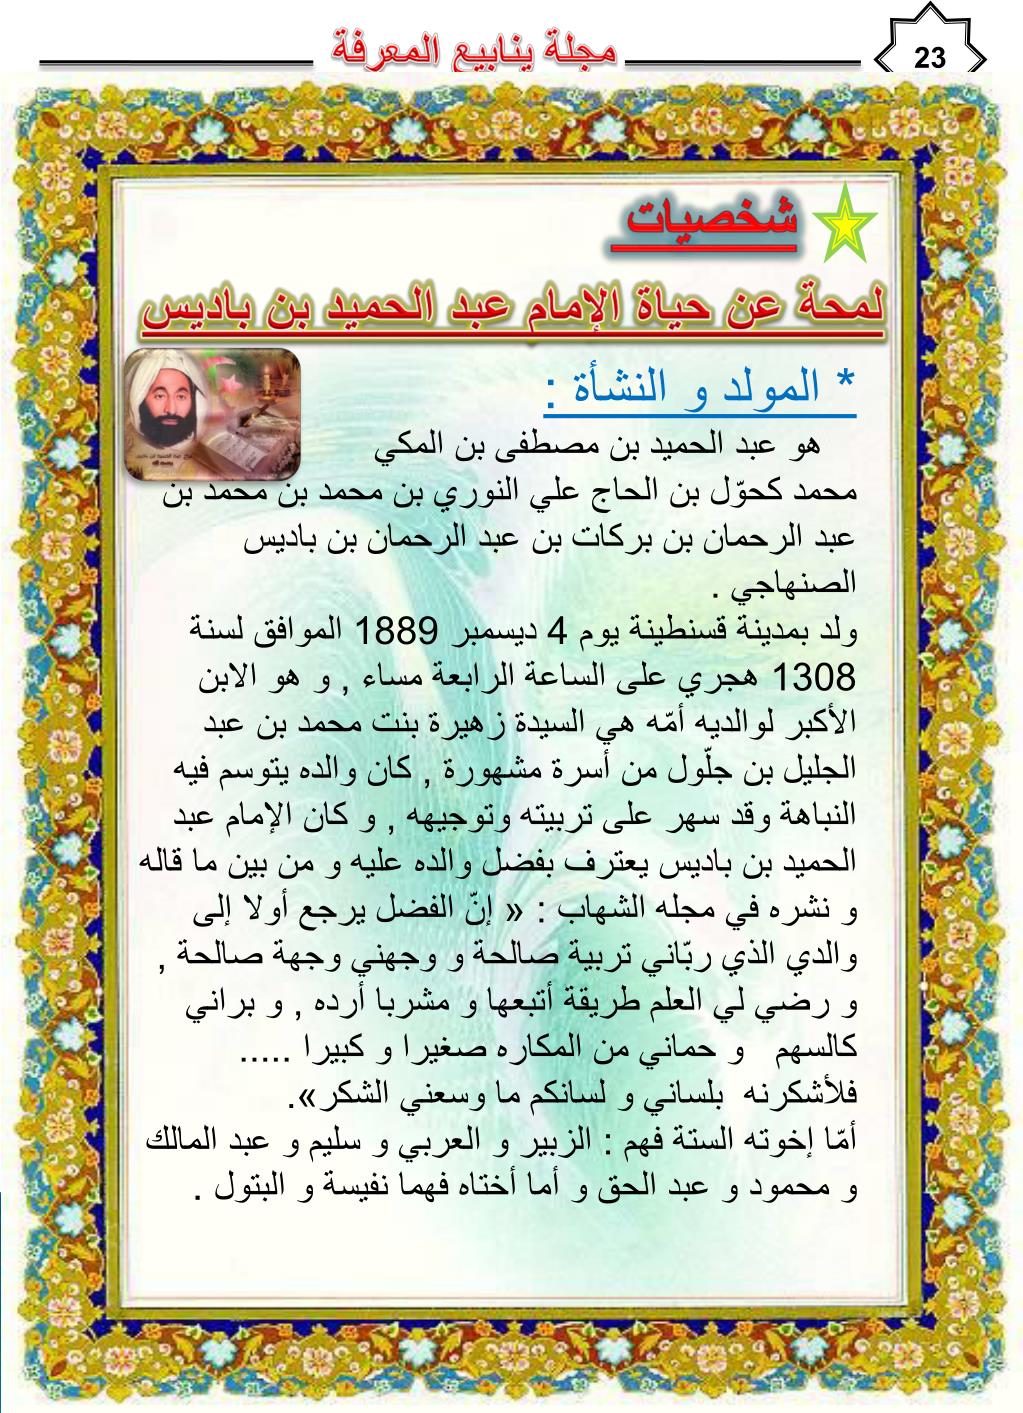 مجلة ينابيع المعرفة
23
شخصيات
لمحة عن حياة الإمام عبد الحميد بن باديس
* المولد و النشأة :
هو عبد الحميد بن مصطفى بن المكي
محمد كحوّل بن الحاج علي النوري بن محمد بن محمد بن
عبد الرحمان بن بركات بن عبد الرحمان بن باديس
الصنهاجي .
ولد بمدينة قسنطينة يوم 4 ديسمبر 1889 الموافق لسنة
1308 هجري على الساعة الرابعة مساء , و هو الابن
الأكبر لوالديه أمّه هي السيدة زهيرة بنت محمد بن عبد
الجليل بن جلّول من أسرة مشهورة , كان والده يتوسم فيه
النباهة وقد سهر على تربيته وتوجيهه , و كان الإمام عبد
الحميد بن باديس يعترف بفضل والده عليه و من بين ما قاله
و نشره في مجله الشهاب : « إنّ الفضل يرجع أولا إلى
والدي الذي ربّاني تربية صالحة و وجهني وجهة صالحة ,
و رضي لي العلم طريقة أتبعها و مشربا أرده , و براني
كالسهم و حماني من المكاره صغيرا و كبيرا .....
فلأشكرنه بلساني و لسانكم ما وسعني الشكر».
أمّا إخوته الستة فهم : الزبير و العربي و سليم و عبد المالك
و محمود و عبد الحق و أما أختاه فهما نفيسة و البتول .